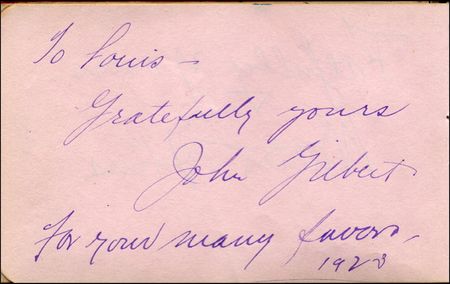 To Louis —
Gratefully yours
John Gilbert
For your many favors,
1923